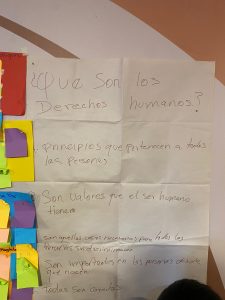 ¿Que Son los
Derechos humanos?
principios que pertenecen a todas
las personas
Son Valores que el ser humano
tienen
son aquellas cosas necesarias para todos los
Son importantes en las personas desde
que nacen
todas son